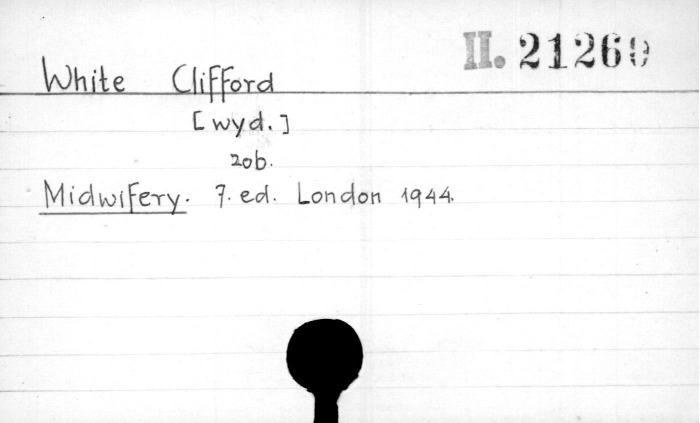 II. 21269
White Clifford
[wyd.]
zob.
Midwifery. 7. ed. London 1944.